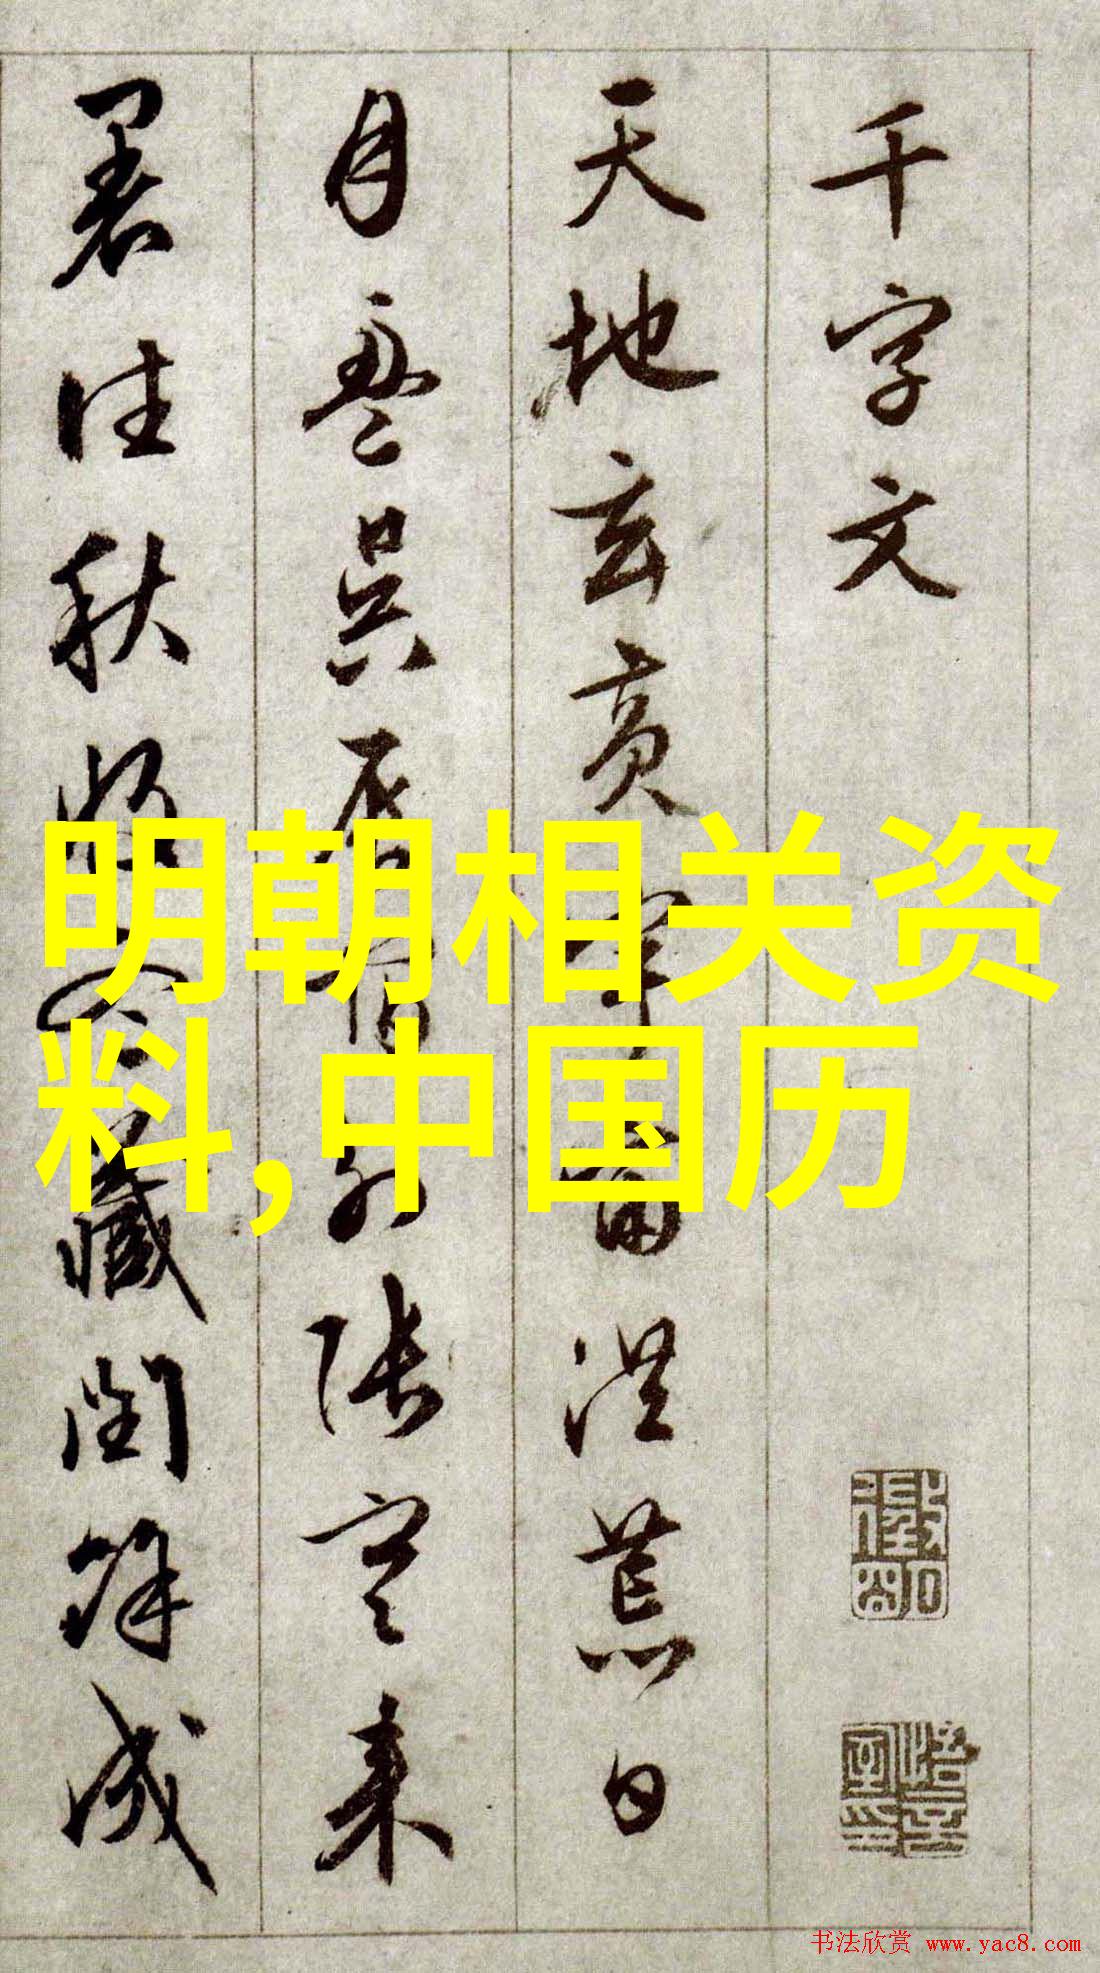 千字文
天地玄黄宇宙洪荒日
月盈昃辰宿列张寒来
暑往秋收冬藏閏餘成
明朝相关资
料,中国历
书法欣赏 www.yac8.com